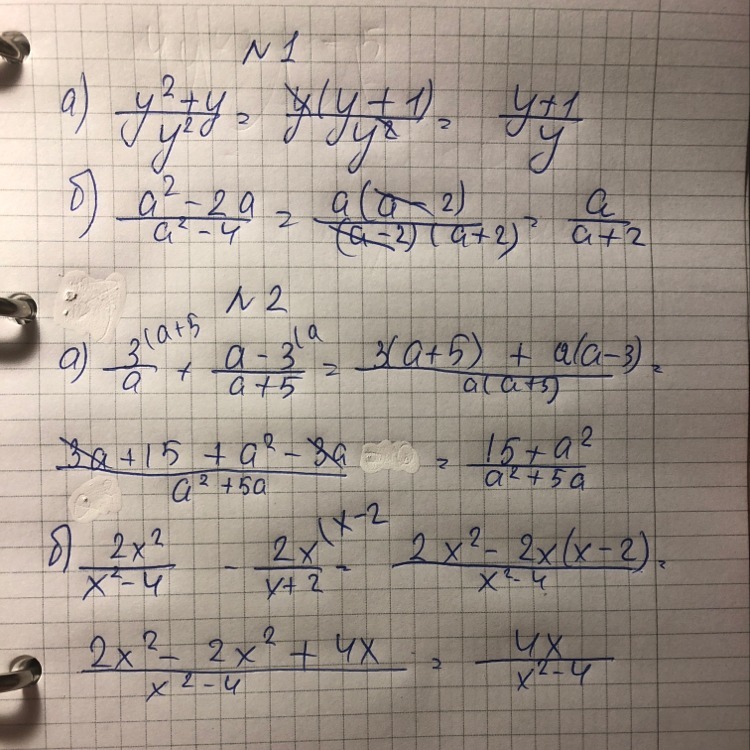 N 1
а) (y² + y)/y² = y(y + 1)/y² = (y+1)/y
б) (a² - 2a)/(a² - 4) = a(a - 2)/((a-2)(a+2)) = a/(a+2)
N 2
а) 3/a (a+5 + (a-3)/(a+5) (a = (3(a+5) + a(a-3))/(a(a+5)) =
(3a + 15 + a² - 3a)/(a² + 5a) = (15 + a²)/(a² + 5a)
б) 2x²/(x² - 4) - 2x/(x+2) (x-2 = (2x² - 2x(x-2))/(x² - 4) =
(2x² - 2x² + 4x)/(x² - 4) = 4x/(x² - 4)